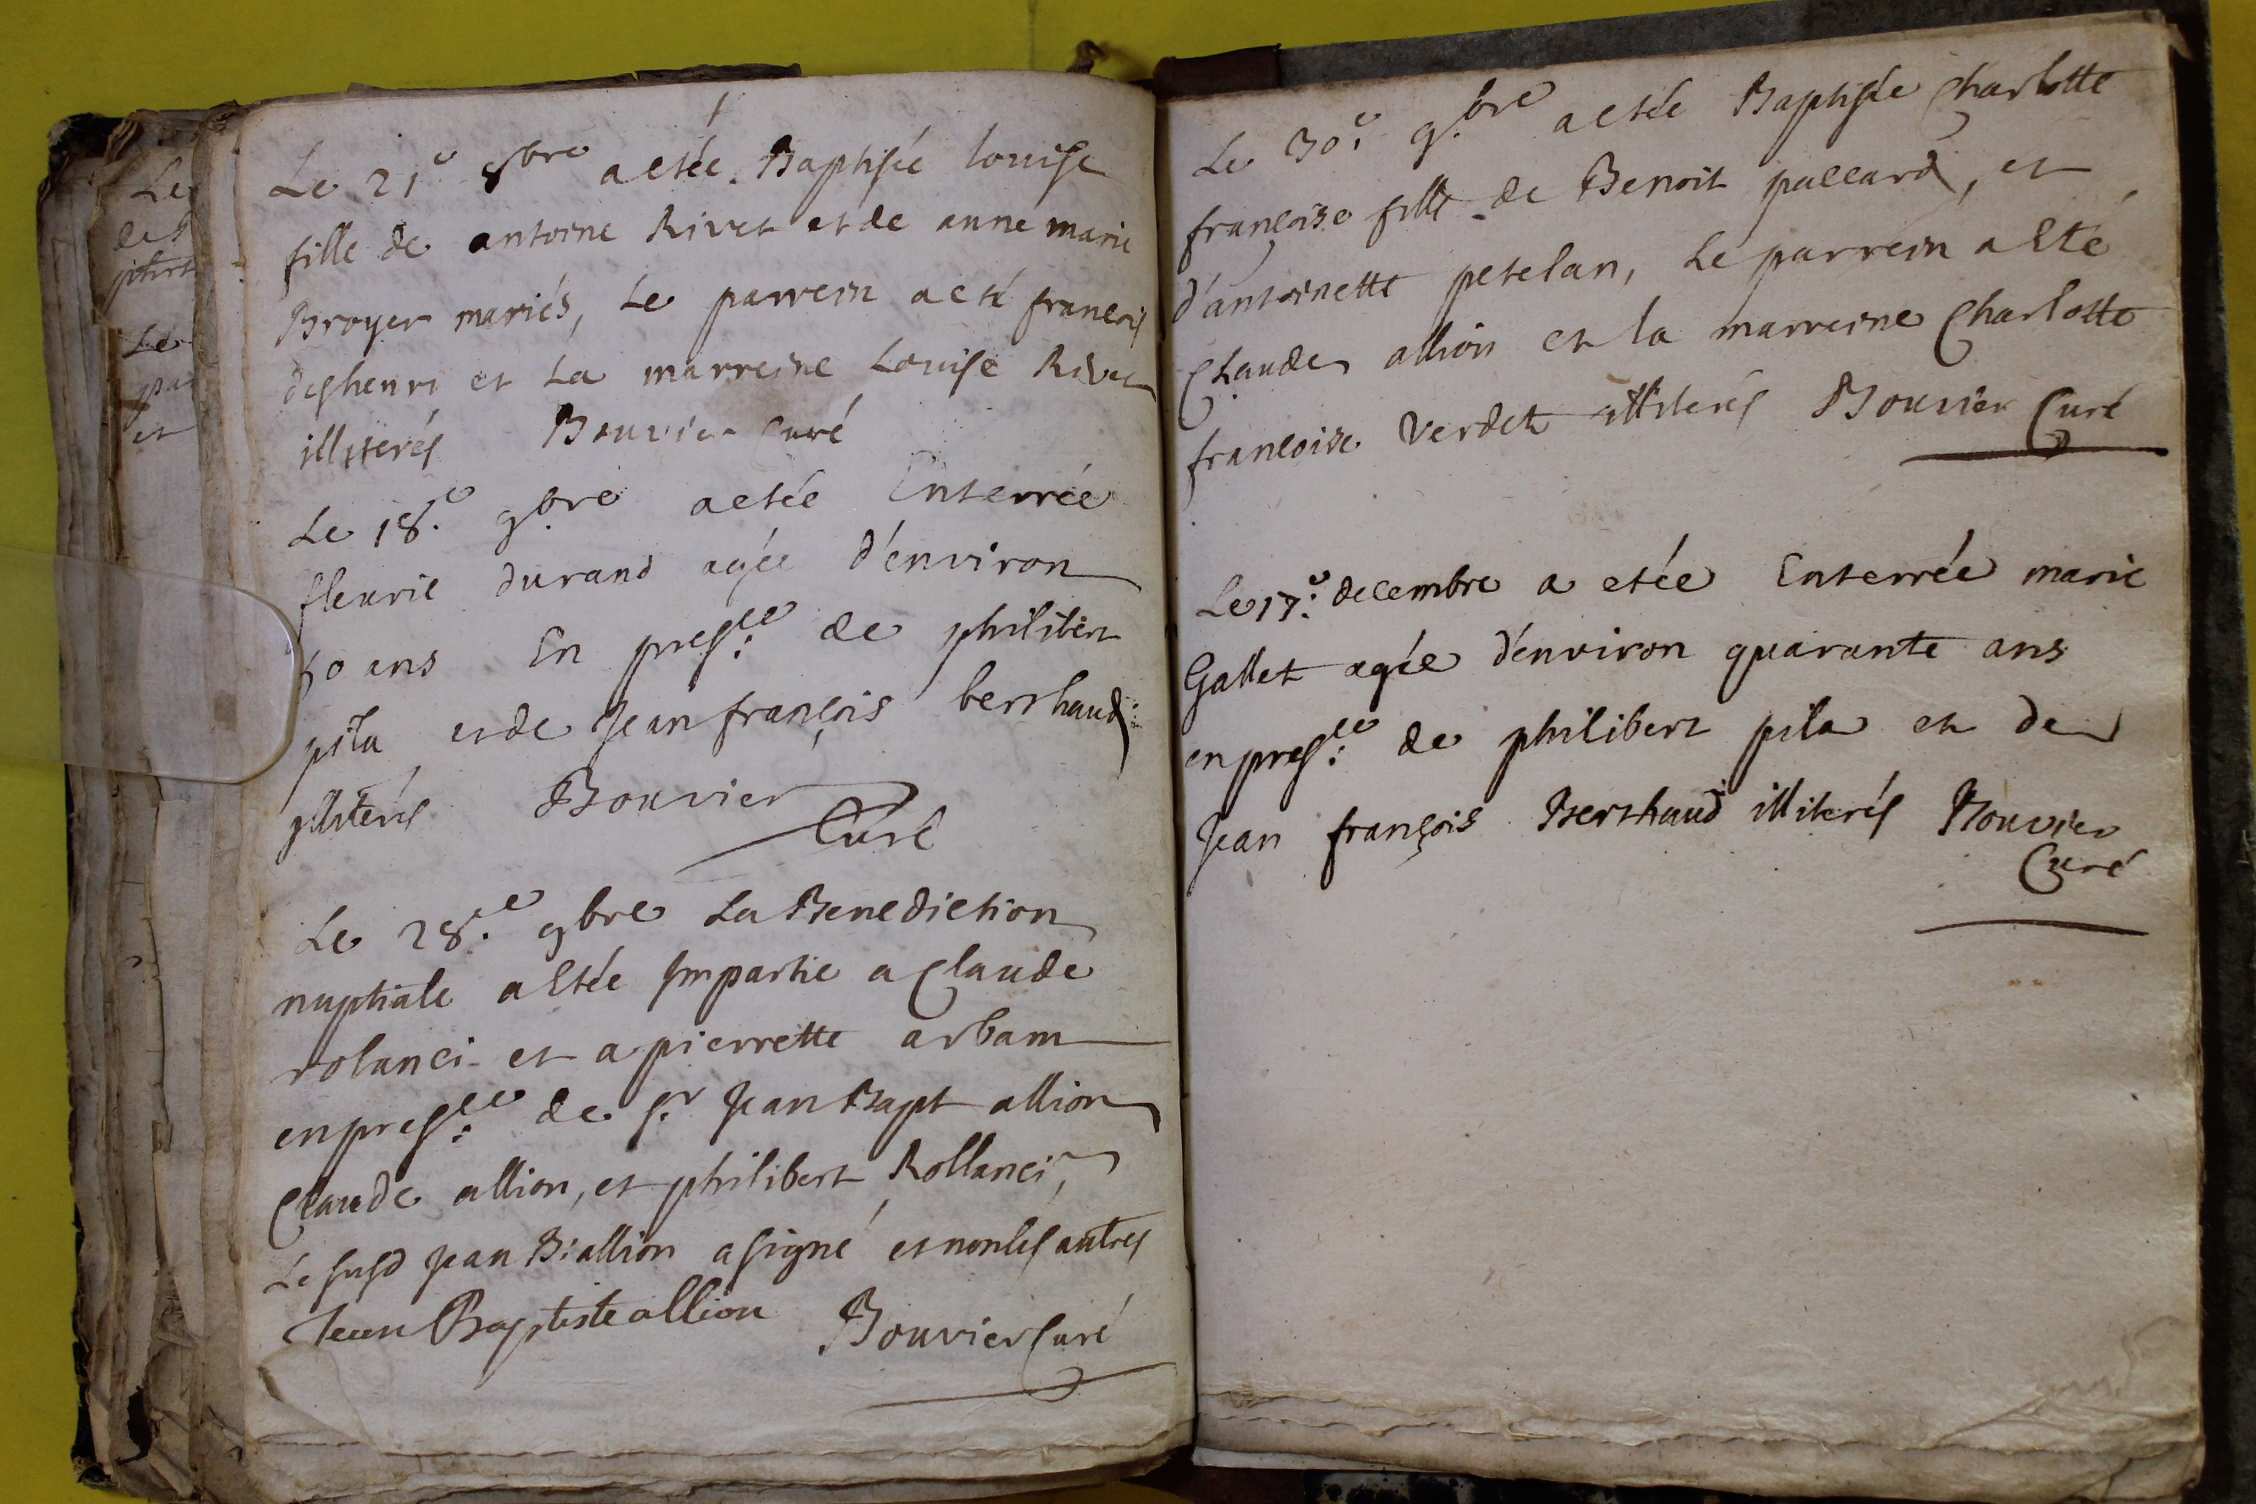 Le 21e 8bre a etée Baptisée louise
fille de antoine Rivet et de anne marie
Broyer mariés, Le parrein a eté francois
deshenri et La marreine Louise Rivet
illiterés Bouvier Curé
Le 18.e 9bre a etée Enterrée
fleurie durand agée d'environ
50 ans En presce: de philibert
pila et de Jean françois berthaud
illiterés Bouvier
Curé
Le 28.e 9bre La Benediction
nuptiale a Etée Impartie a Claude
rolanci et a pierrette arbam
en presce: de Sr. Jean Bapt allion
Claude allion, et philibert Rollanci,
Le susd Jean B: allion a signé et non les autres
Jean Baptiste allion Bouvier Curé
Le 30.e 9.bre a etée Baptisée Charlotte
françoise fille de Benoit paccard, et
d'antoinette petelan, Le parrein a Eté
Claude allion et la marreine Charlotte
francoise Verdet illiterés Bouvier Curé
Le 17.e decembre a etée Enterrée marie
Gallet agée d'environ quarante ans
en presce: de philibert pila et de
Jean françois Berthaud illiterés Bouvier
Curé
Le
des
Le
par
et